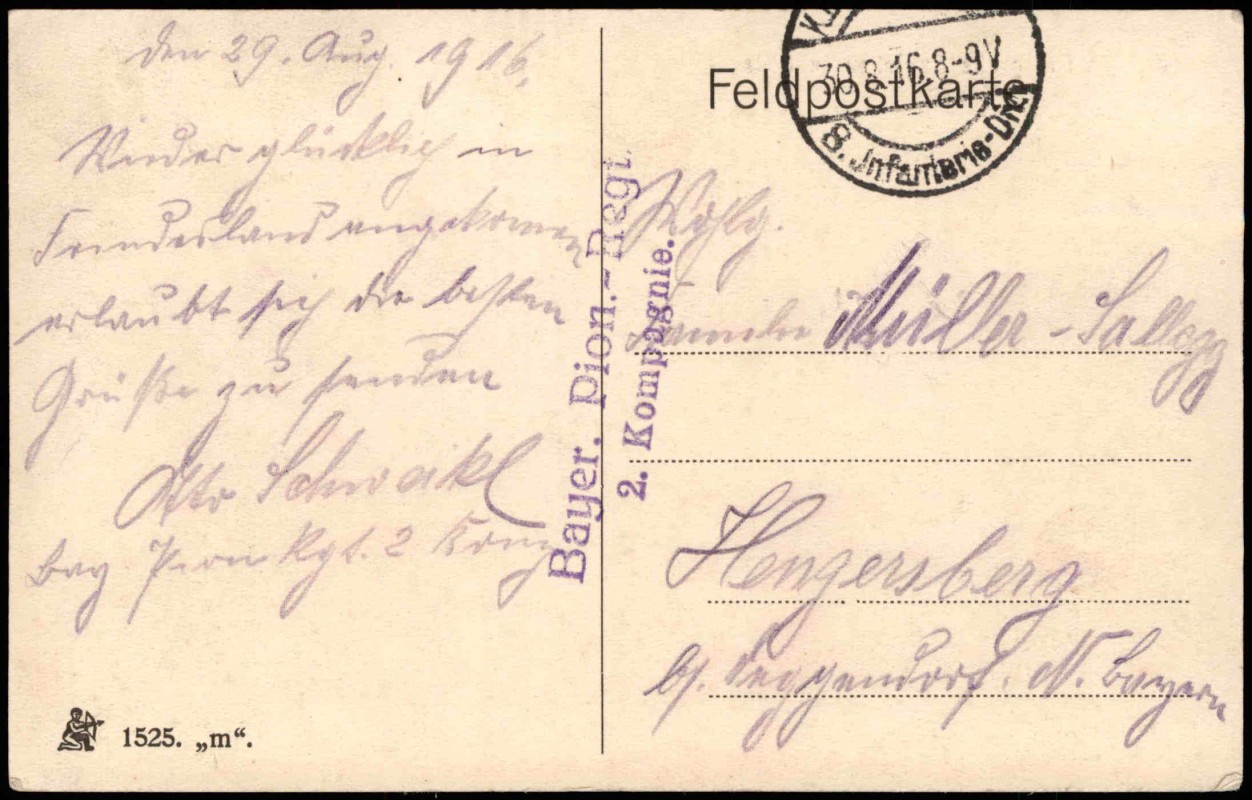 den 29. Aug. 1916.
Wieder glücklich in
Feindesland angekommen
erlaubt sich die besten
Grüße zu senden
Otto Schweikl
Bay. Pion Rgt. 2 Komp
1525. „m“.
Bayer. Pion.-Regt.
2. Kompagnie.
Feldpostkarte
30.8.16.8-9V
8. Infanterie-Div.
Wohlg.
Familie Müller-Sallegg
Hengersberg
b/. Deggendorf. N. Bayern